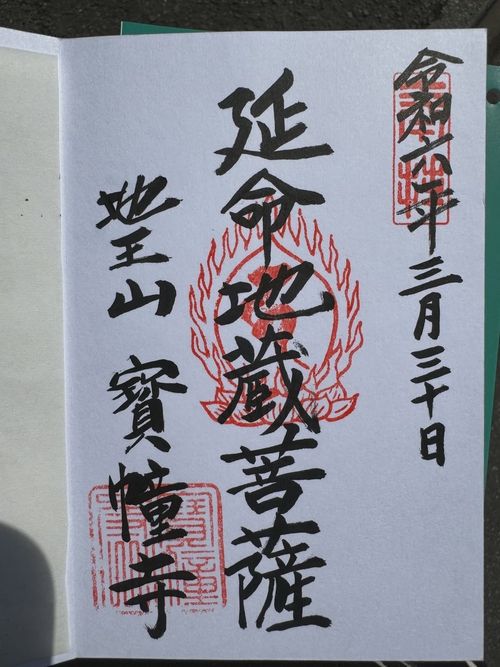 奉拝
令和六年三月三十日
延命地蔵菩薩
地王山 寳幢寺